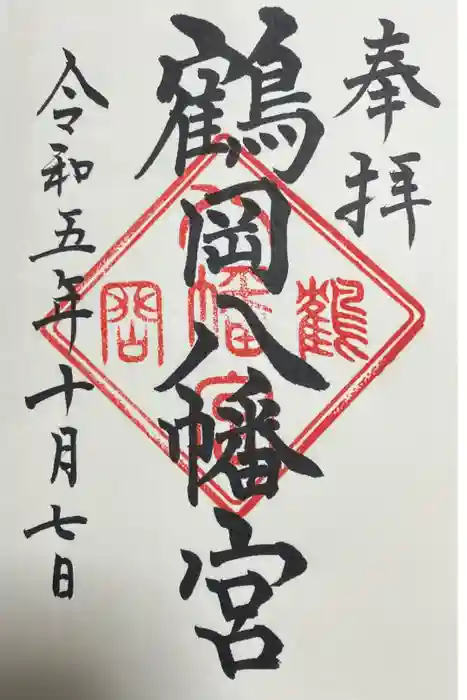 奉拝
鶴岡八幡宮
令和五年十月七日
鶴
八幡宮
岡